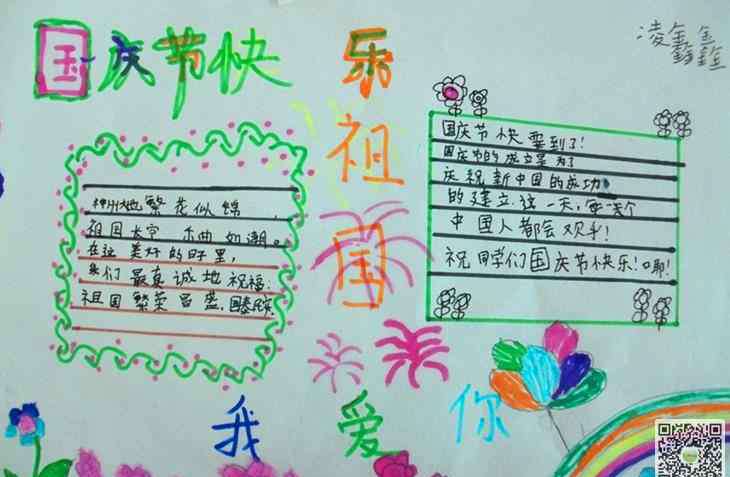 国庆节快乐
凌鑫鑫
祖国
神州大地繁花似锦，
祖国长空 乐曲如潮。
在这美好的日子里，
我们最真诚地祝福：
祖国繁荣昌盛，国泰民安
国庆节快要到了！
国庆节的成立是为了
庆祝新中国的成功
的建立.这一天，每个
中国人都会欢乎！
祝同学们国庆节快乐！耶！
我爱你